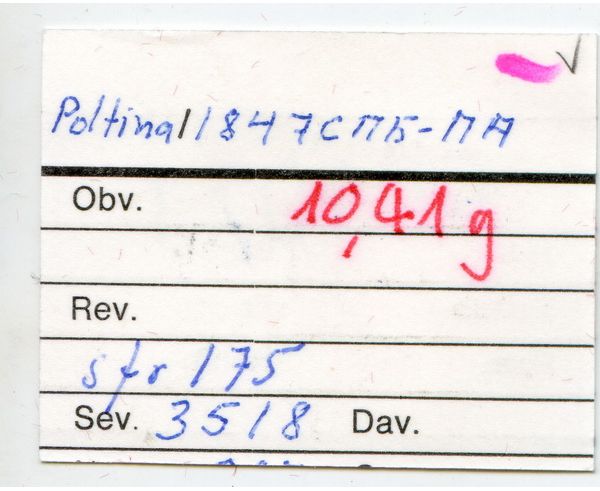 Poltina/1847СПБ-ПА
Obv. 10,41 g
Rev.
sfr 175
Sev. 3518 Dav.